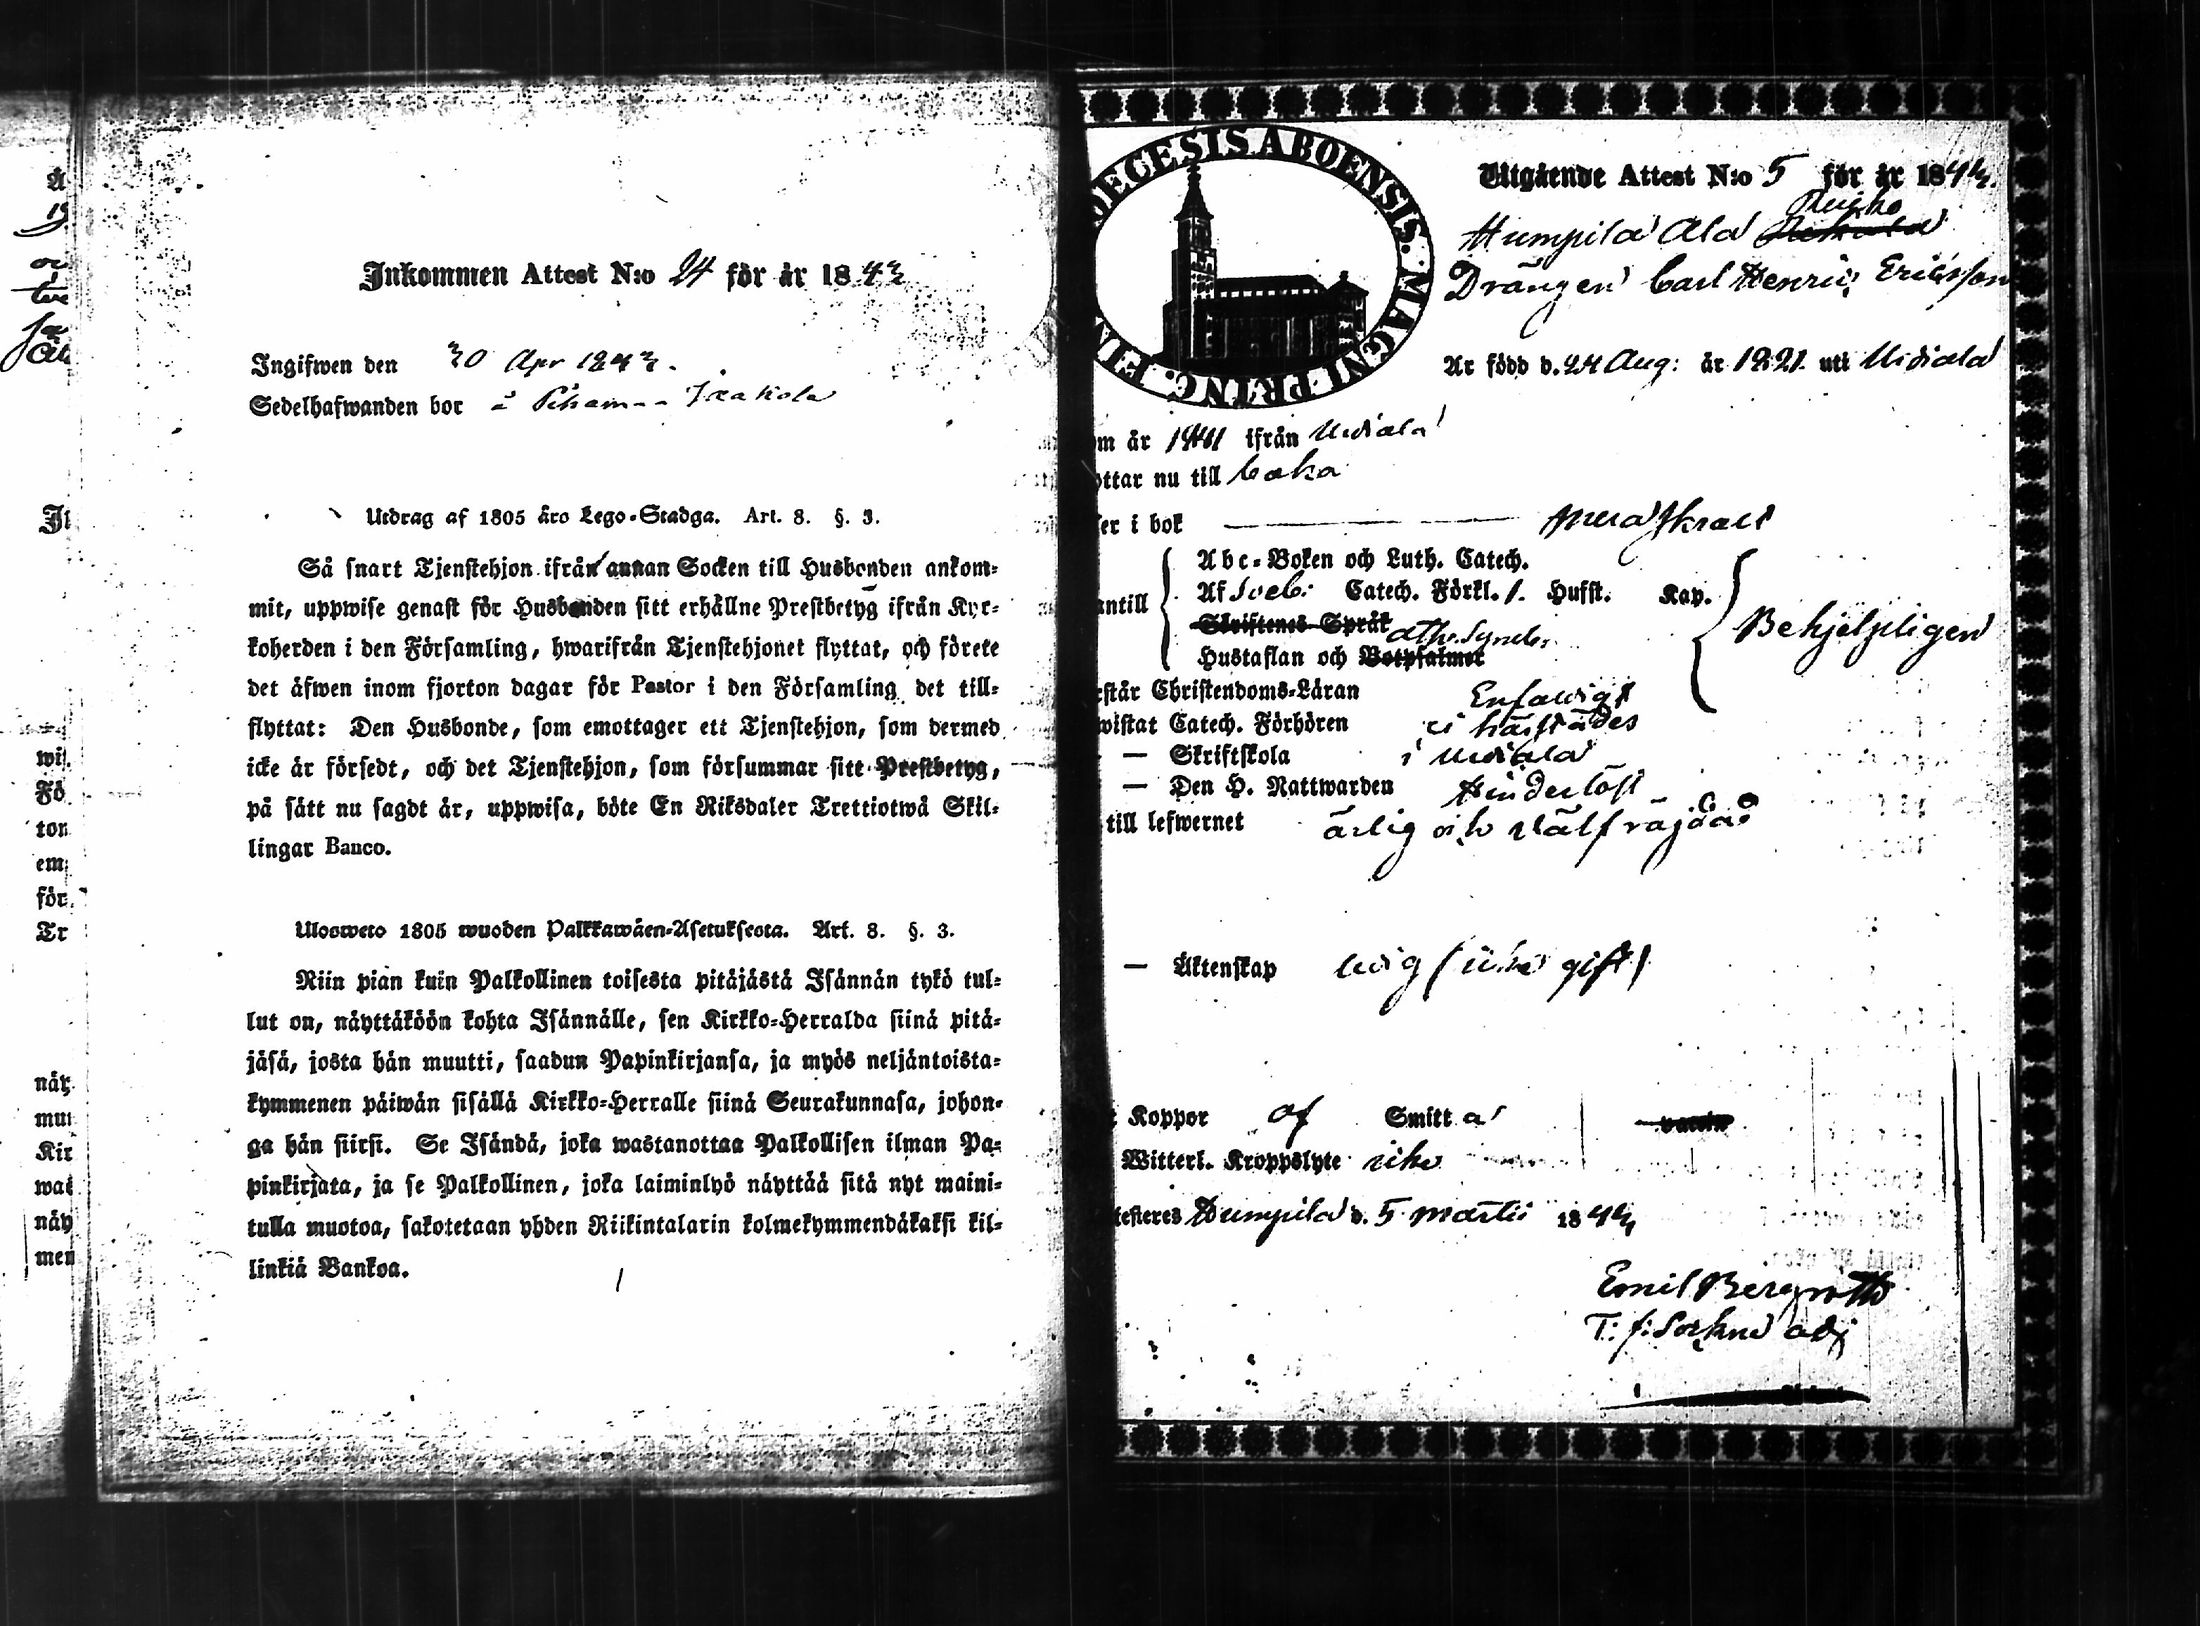 Inkommen Attest N:o 24 för år 1843
Ingifwen den 30 Apr 1843.
Sedelhafwanden bor i
Utdrag af 1805 års Lego-Stadga. Art. 8. §. 3.
Så snart Tjenstehjon ifrån annan Socken till Husbonden ankom-
mit, uppwise genast för Husbonden sitt erhållne Prestbetyg ifrån Kyr-
koherden i den Församling, hwarifrån Tjenstehjonet flyttat, och förete
det äfwen inom fjorton dagar för Pastor i den Församling det till-
flyttat: Den Husbonde, som emottager ett Tjenstehjon, som dermed
icke är försedt, och det Tjenstehjon, som försummar sitt Prestbetyg,
på sätt nu sagdt är, uppwisa, böte En Riksdaler Trettiotwå Skil-
lingar Banco.
Ulosweto 1805 wuoden Palkkawäen-Asetuksesta. Art. 8. §. 3.
Niin pian kuin Palkollinen toisesta pitäjästä Isännän tykö tul-
lut on, näyttäköön kohta Isännälle, sen Kirkko-Herralda siinä pitä-
jäsä, josta hän muutti, saadun Papinkirjansa, ja myös neljäntoista-
kymmenen päiwän sisällä Kirkko-Herralle siinä Seurakunnasa, johon-
ga hän siirsi. Se Isändä, joka wastanottaa Palkollisen ilman Pa-
pinkirjata, ja se Palkollinen, joka laiminlyö näyttää sitä nyt maini-
tulla muotoa, sakotetaan yhden Riikintalarin kolmekymmendäkaksi kil-
linkiä Bankoa.
DECESIS ABOENSIS. MAGNI PRINC. FIN
Utgående Attest N:o 5 för år 1843.
Humpila Ala
Drängen Carl Henric Ericsson
Är född d. 24 Aug: år 1821. uti Urdiala
om år 1841 ifrån Urdiala
ottar nu till
ser i bok
antill
Abc-Boken och Luth. Catech.
Af Sveb. Catech. Förkl. Husst. Kap.
Skriftenes Språk Ath. Symb.
Hustaflan och Botpsalmer
Behjelpligen
rstår Christendoms-Läran Enfaldigt
wistat Catech. Förhören ei härstädes
— Skriftskola i Urdiala
— Den H. Nattwarden Hinderlöst
till lefwernet ärlig och välfräjdad
— Äktenskap ledig (icke gift)
Koppor af Smitta
Witterl. Kroppslyte icke
testeres Humpila d. 5 Martii 1843
Emil Bergroth
T: f: Sockne adj